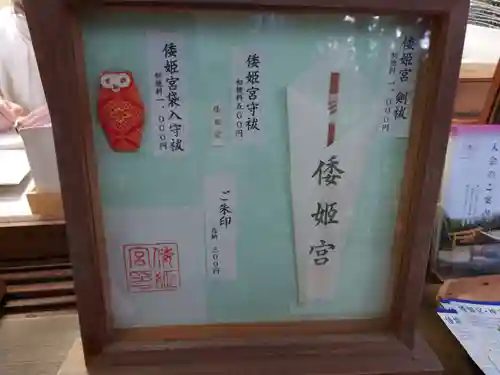 倭姫宮 剣祓
初穂料 一、〇〇〇円
倭姫宮
倭姫宮守祓
初穂料 五〇〇円
倭姫宮袋入守祓
初穂料 一、〇〇〇円
ご朱印
三〇〇円